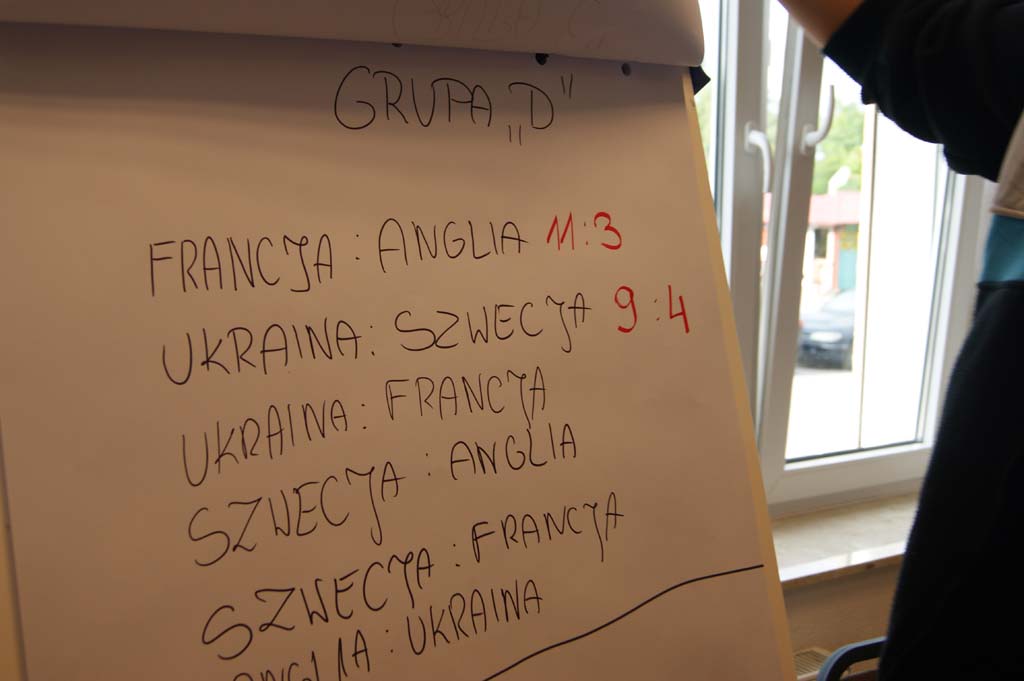 GRUPA „D"
FRANCJA : ANGLIA 11:3
UKRAINA : SZWECJA 9:4
UKRAINA : FRANCJA
SZWECJA : ANGLIA
SZWECJA : FRANCJA
ANGLIA : UKRAINA